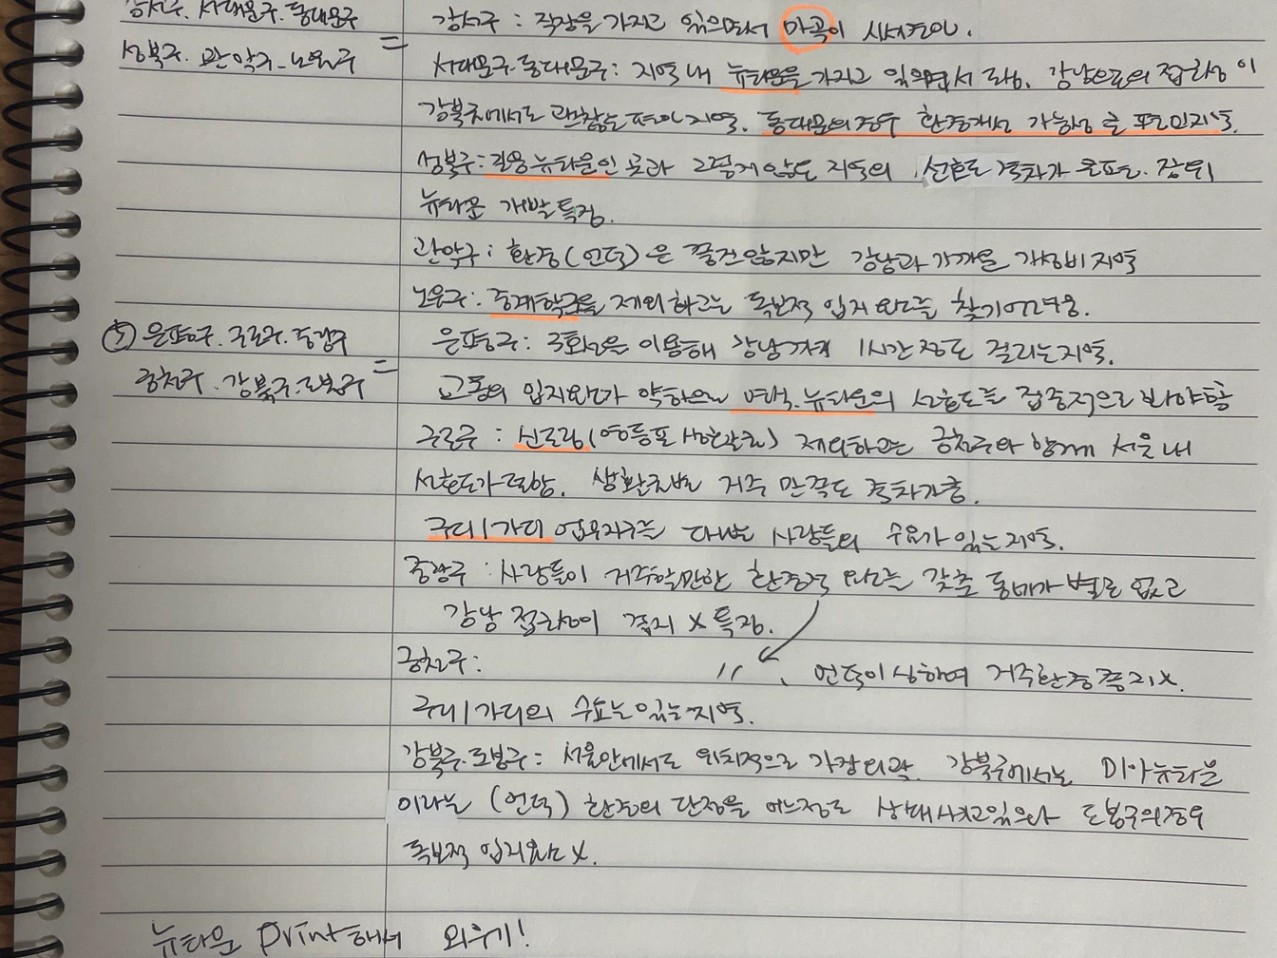 강서구. 서대문구. 동대문구
성북구. 관악구. 노원구
=
강서구 : 직장을 가지고 있으면서 마곡이
서대문구.동대문구 : 지역 내 뉴타운을 가지고 있으면서 강남으로의 접근성이
강북구에서도 괜찮은 편인 지역. 동대문의 경우 환경개선 가능성 큰 편인 지역.
성북구 : 길음뉴타운인 곳과 그렇게 않은 지역의 선호도 격차가 큰 편. 장위
뉴타운 개발 특징.
관악구 : 환경(언덕)은 좋진 않지만 강남과 가까운 가성비 지역
노원구 : 중계학군을 제외하고는 독보적 입지요소를 찾기 어려움.
⑤ 은평구. 구로구. 중랑구
금천구. 강북구. 도봉구
=
은평구 : 3호선을 이용해 강남까지 1시간 정도 걸리는 지역.
교통의 입지요소가 약하므로 택지.뉴타운의 선호도를 집중적으로 봐야함
구로구 : 신도림(영등포 생활권) 제외하고는 금천구와 함께 서울 내
선호도가 낮음. 생활권별 거주 만족도 격차가 큼.
구디/가디 업무지구를 다니는 사람들의 수요가 있는 지역.
중랑구 : 사람들이 거주할만한 환경적 요소를 갖춘 동네가 별로 없고
강남 접근성이 좋지 X 특징.
금천구 : 〃 . 언덕이 심하여 거주환경 좋지 X.
구디/가디의 수요는 있는 지역.
강북구.도봉구 : 서울안에서도 위치적으로 가장 외곽. 강북구에서는 미아뉴타운
이라는 (언덕) 환경의 단점을 어느정도 상쇄시키고있으나 도봉구의경우
독보적 입지요소 X.
뉴타운 print해서 외우기!